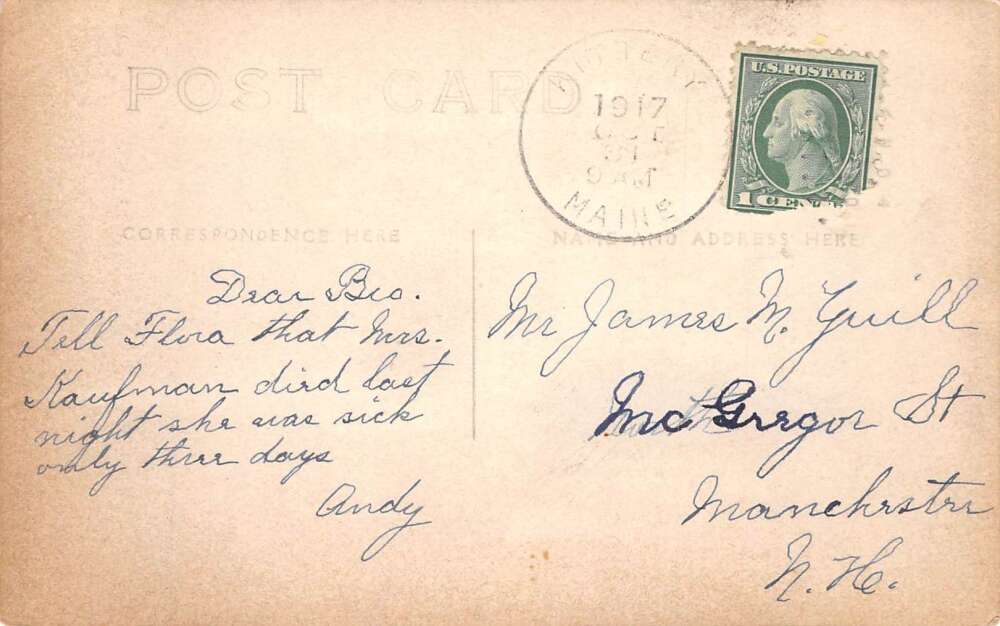 POST CARD
KITTERY
1917
OCT
31
9 AM
MAINE
U.S. POSTAGE
1 CENT
CORRESPONDENCE HERE
NAME AND ADDRESS HERE
Dear Bro.
Tell Flora that Mrs.
Kaufman died last
night she was sick
only three days
Andy
Mr James M. Guill
Mc Gregor St
Manchester
N. H.